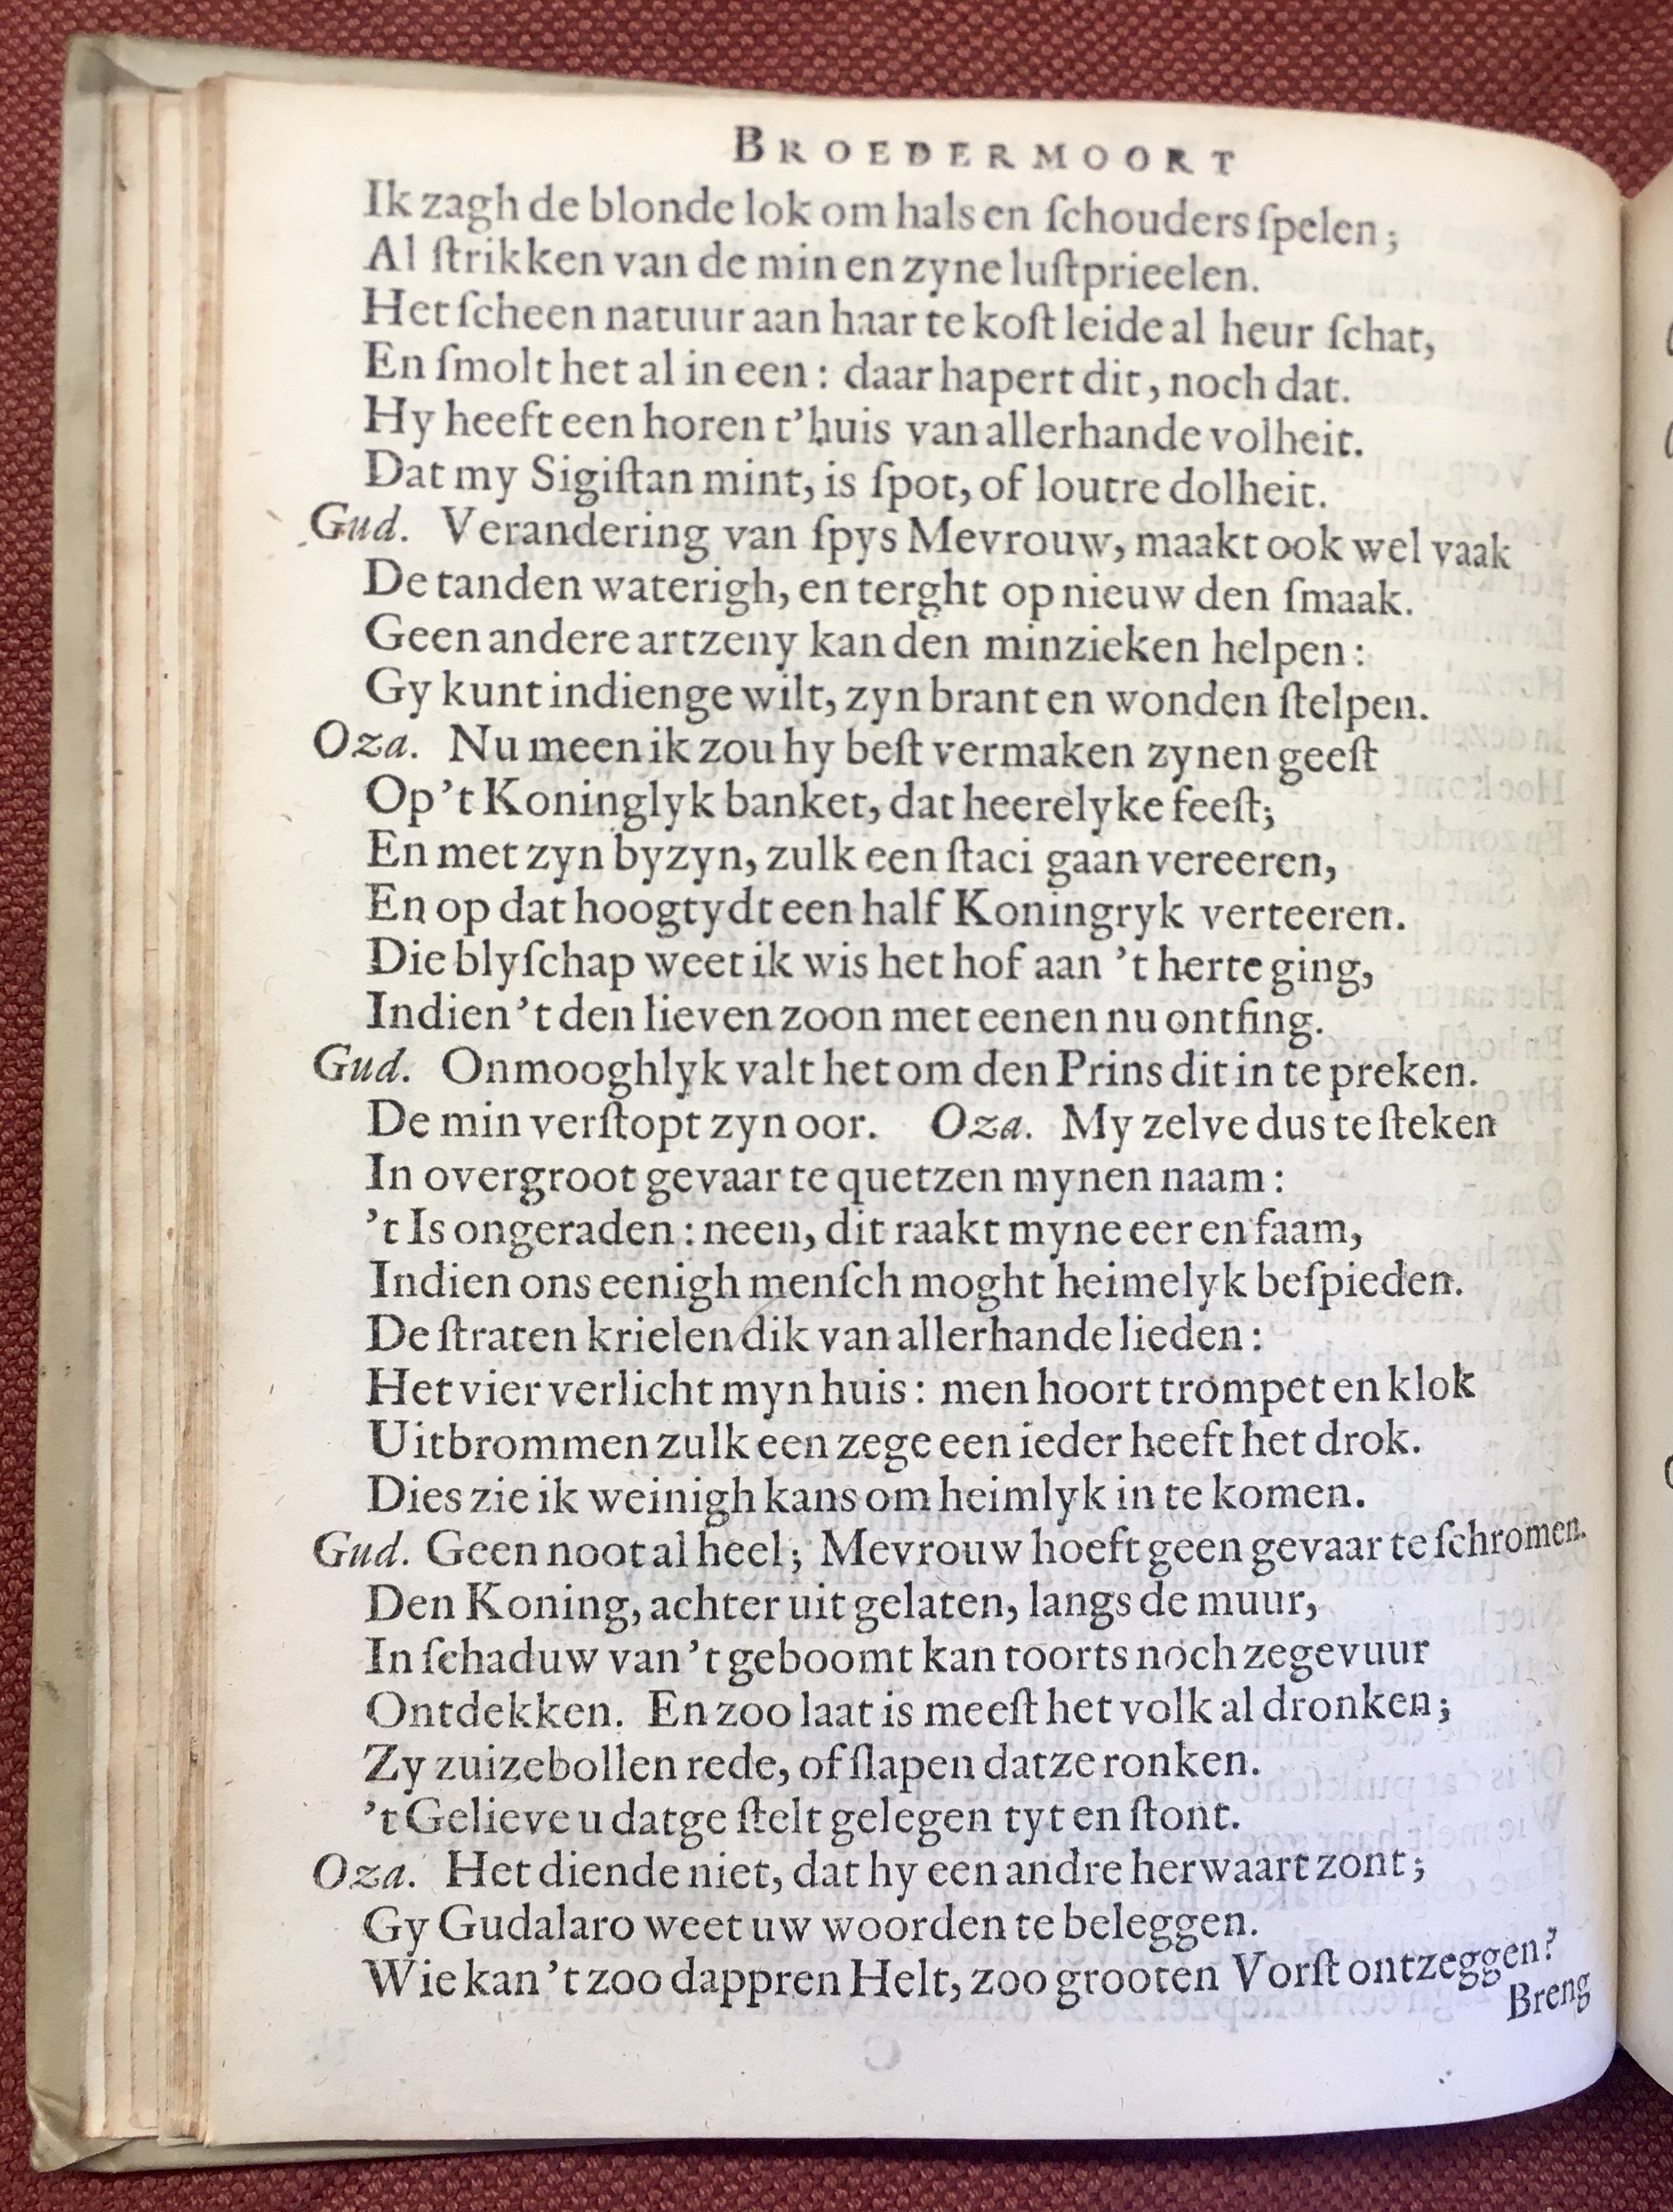 BROEDERMOORT
Ik zagh de blonde lok om hals en ſchouders ſpelen;
Al ſtrikken van de min en zyne luſtprieelen.
Het ſcheen natuur aan haar te koſt leide al heur ſchat,
En ſmolt het al in een: daar hapert dit, noch dat.
Hy heeft een horen t'huis van allerhande volheit.
Dat my Sigiſtan mint, is ſpot, of loutre dolheit.
Gud. Verandering van ſpys Mevrouw, maakt ook wel vaak
De tanden waterigh, en terght op nieuw den ſmaak.
Geen andere artzeny kan den minzieken helpen:
Gy kunt indien ge wilt, zyn brant en wonden ſtelpen.
Oza. Nu meen ik zou hy beſt vermaken zynen geeſt
Op 't Koninglyk banket, dat heerelyke feeſt;
En met zyn byzyn, zulk een ſtaci gaan vereeren,
En op dat hoogtydt een half Koningryk verteeren.
Die blyſchap weet ik wis het hof aan 't herte ging,
Indien 't den lieven zoon met eenen nu ontfing.
Gud. Onmooghlyk valt het om den Prins dit in te preken.
De min verſtopt zyn oor. Oza. My zelve dus te ſteken
In overgroot gevaar te quetzen mynen naam:
't Is ongeraden: neen, dit raakt myne eer en faam,
Indien ons eenigh menſch moght heimelyk beſpieden.
De ſtraten krielen dik van allerhande lieden:
Het vier verlicht myn huis: men hoort trompet en klok
Uitbrommen zulk een zege een ieder heeft het drok.
Dies zie ik weinigh kans om heimlyk in te komen.
Gud. Geen noot al heel; Mevrouw hoeft geen gevaar te ſchromen.
Den Koning, achter uit gelaten, langs de muur,
In ſchaduw van 't geboomt kan toorts noch zegevuur
Ontdekken. En zoo laat is meeſt het volk al dronken;
Zy zuizebollen rede, of ſlapen datze ronken.
't Gelieve u datge ſtelt gelegen tyt en ſtont.
Oza. Het diende niet, dat hy een andre herwaart zont;
Gy Gudalaro weet uw woorden te beleggen.
Wie kan 't zoo dappren Helt, zoo grooten Vorſt ontzeggen?
Breng